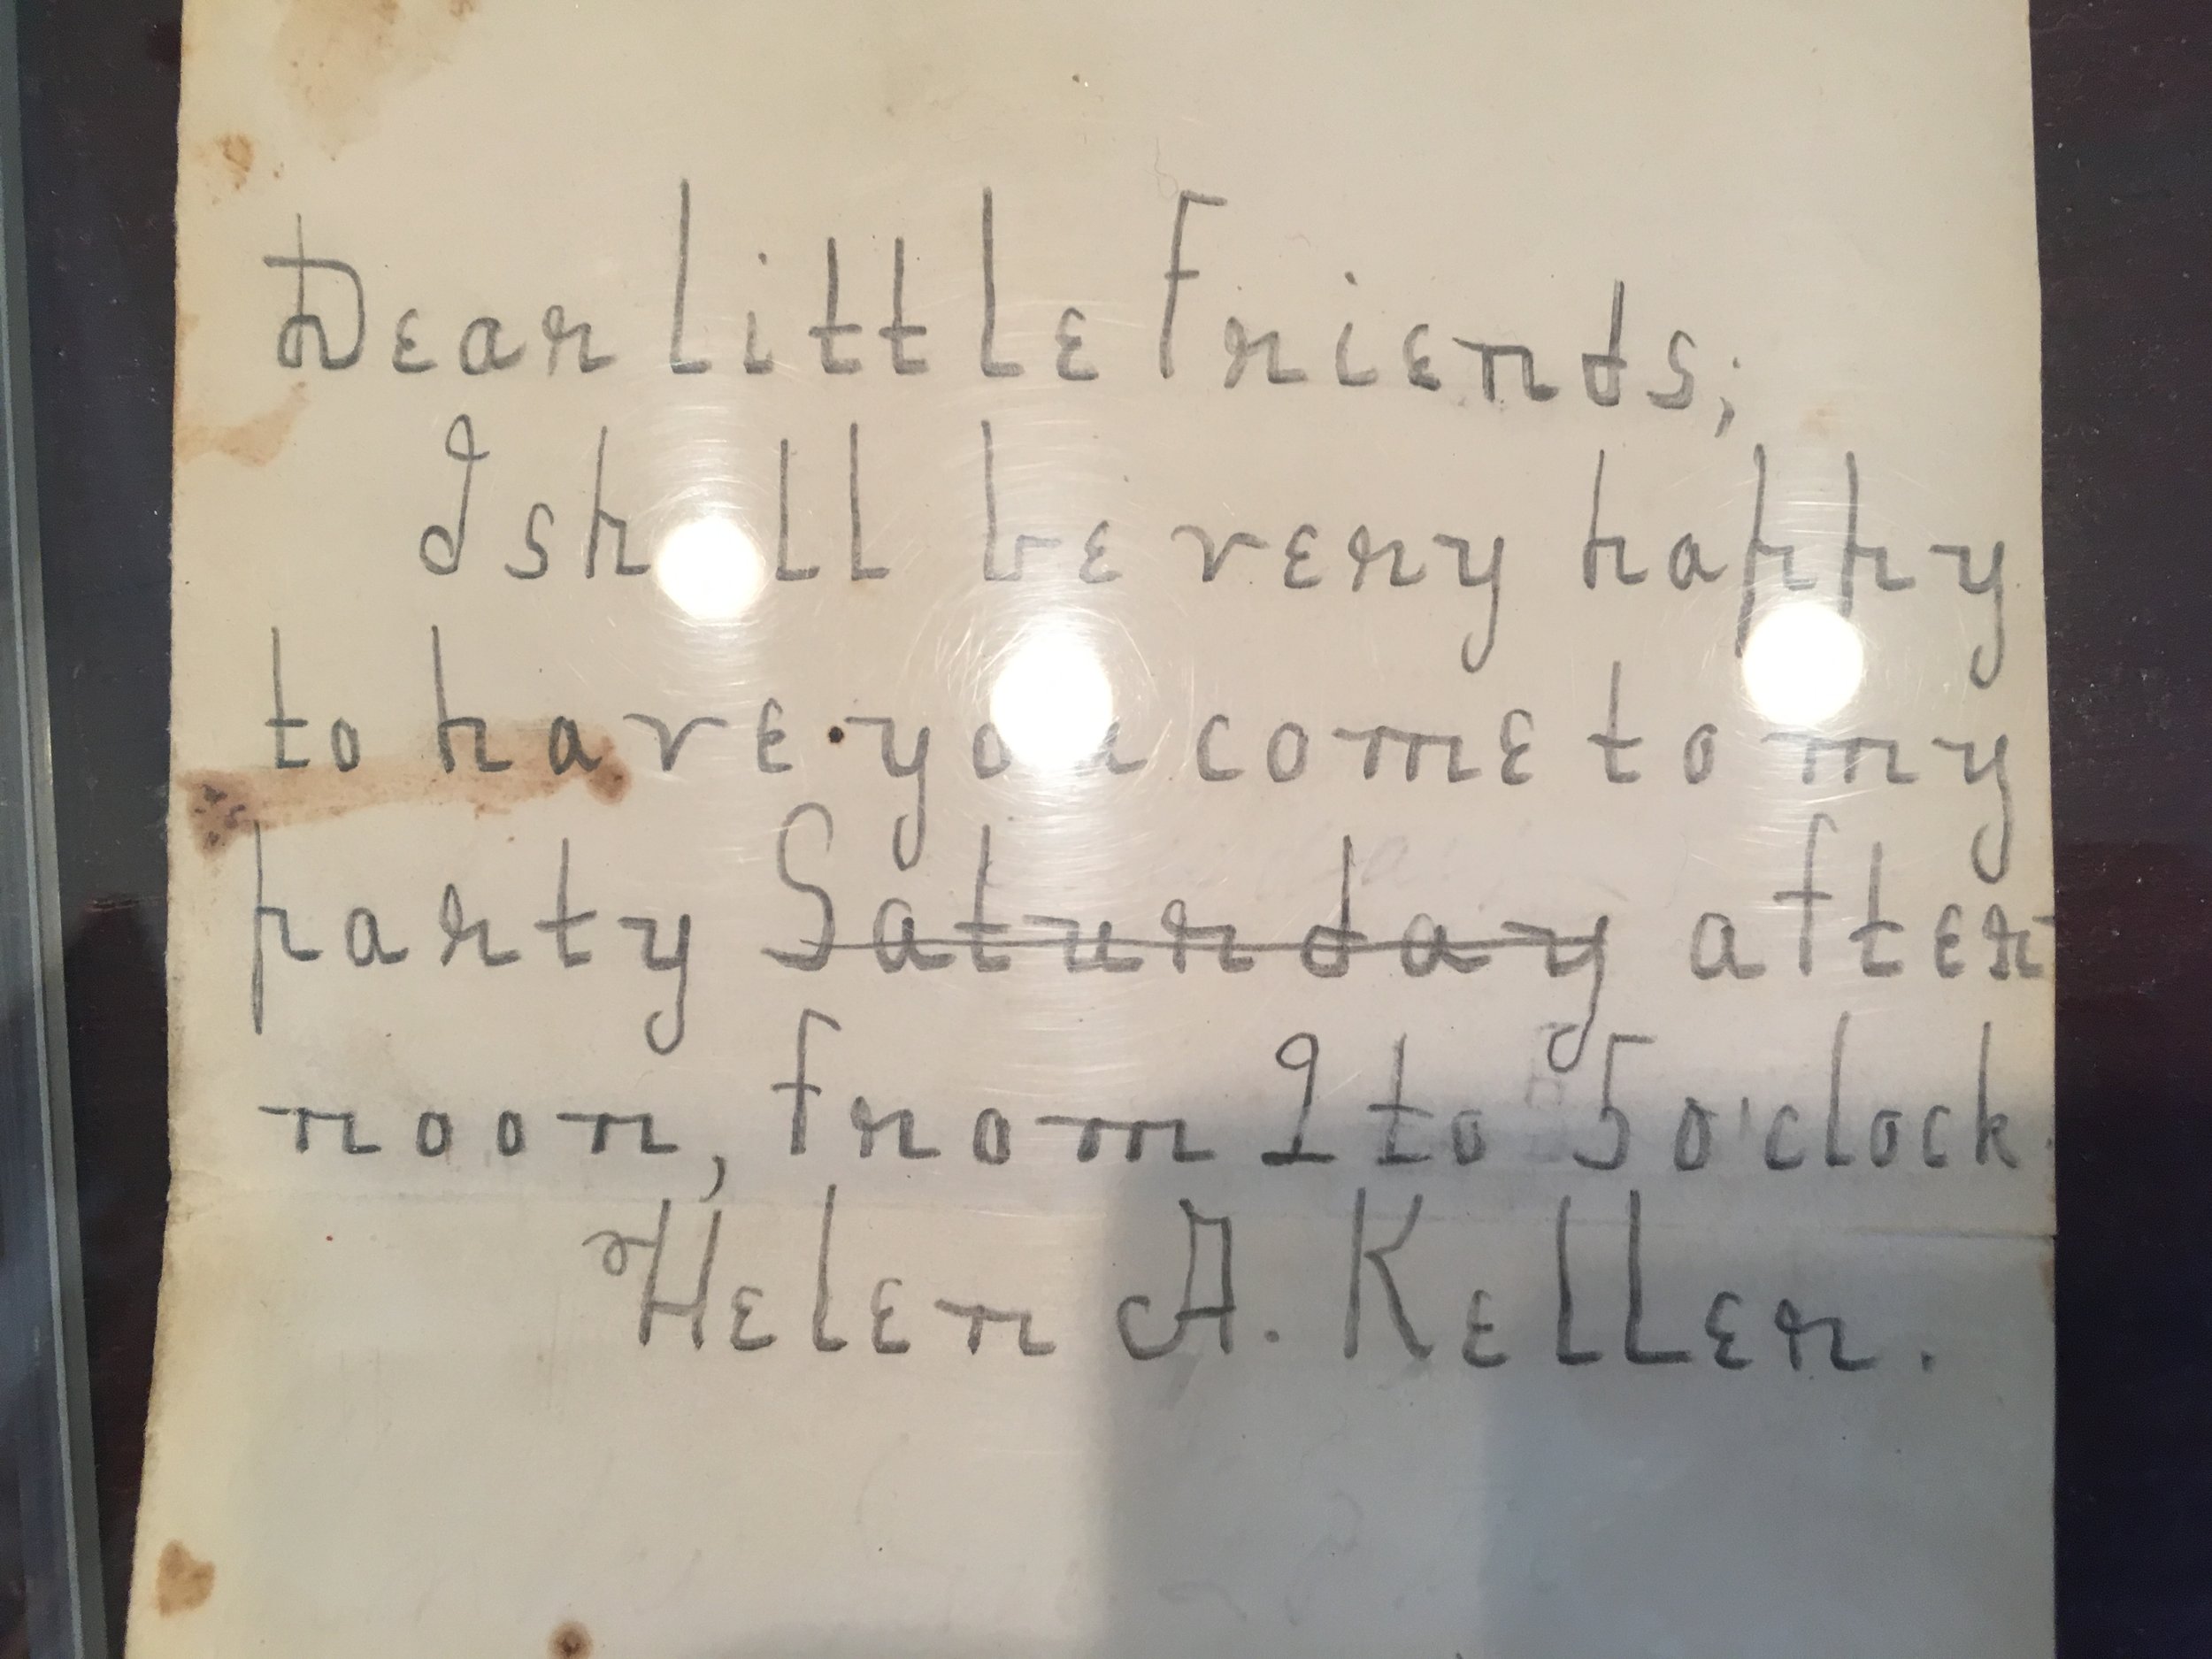 Dear little friends;
I shall be very happy
to have you come to my
party Saturday after
noon, from 2 to 5 o'clock.
Helen A. Keller.